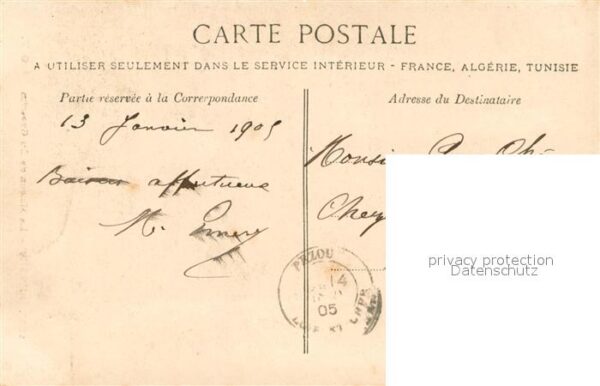 CARTE POSTALE
A UTILISER SEULEMENT DANS LE SERVICE INTÉRIEUR - FRANCE, ALGÉRIE, TUNISIE
Partie réservée à la Correspondance
Adresse du Destinataire
13 Janvier 1905
Baisers affectueux
M.
Monsi
Chey
PEZOU
14
05
privacy protection
Datenschutz